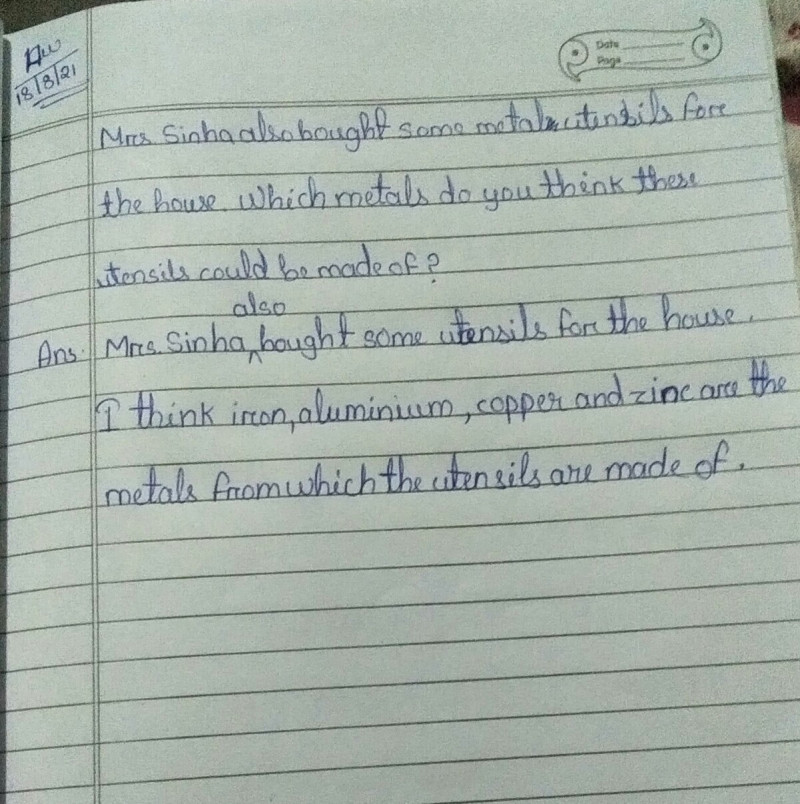 HW
18/8/21
Date
Page
Mrs Sinha also bought some metal utensils for
the house. Which metals do you think these
utensils could be made of?
also
Ans. Mrs. Sinha ^ bought some utensils for the house.
I think iron, aluminium, copper and zinc are the
metals from which the utensils are made of.